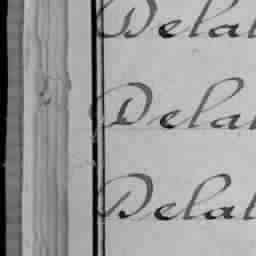 Delat
Delat
Delat